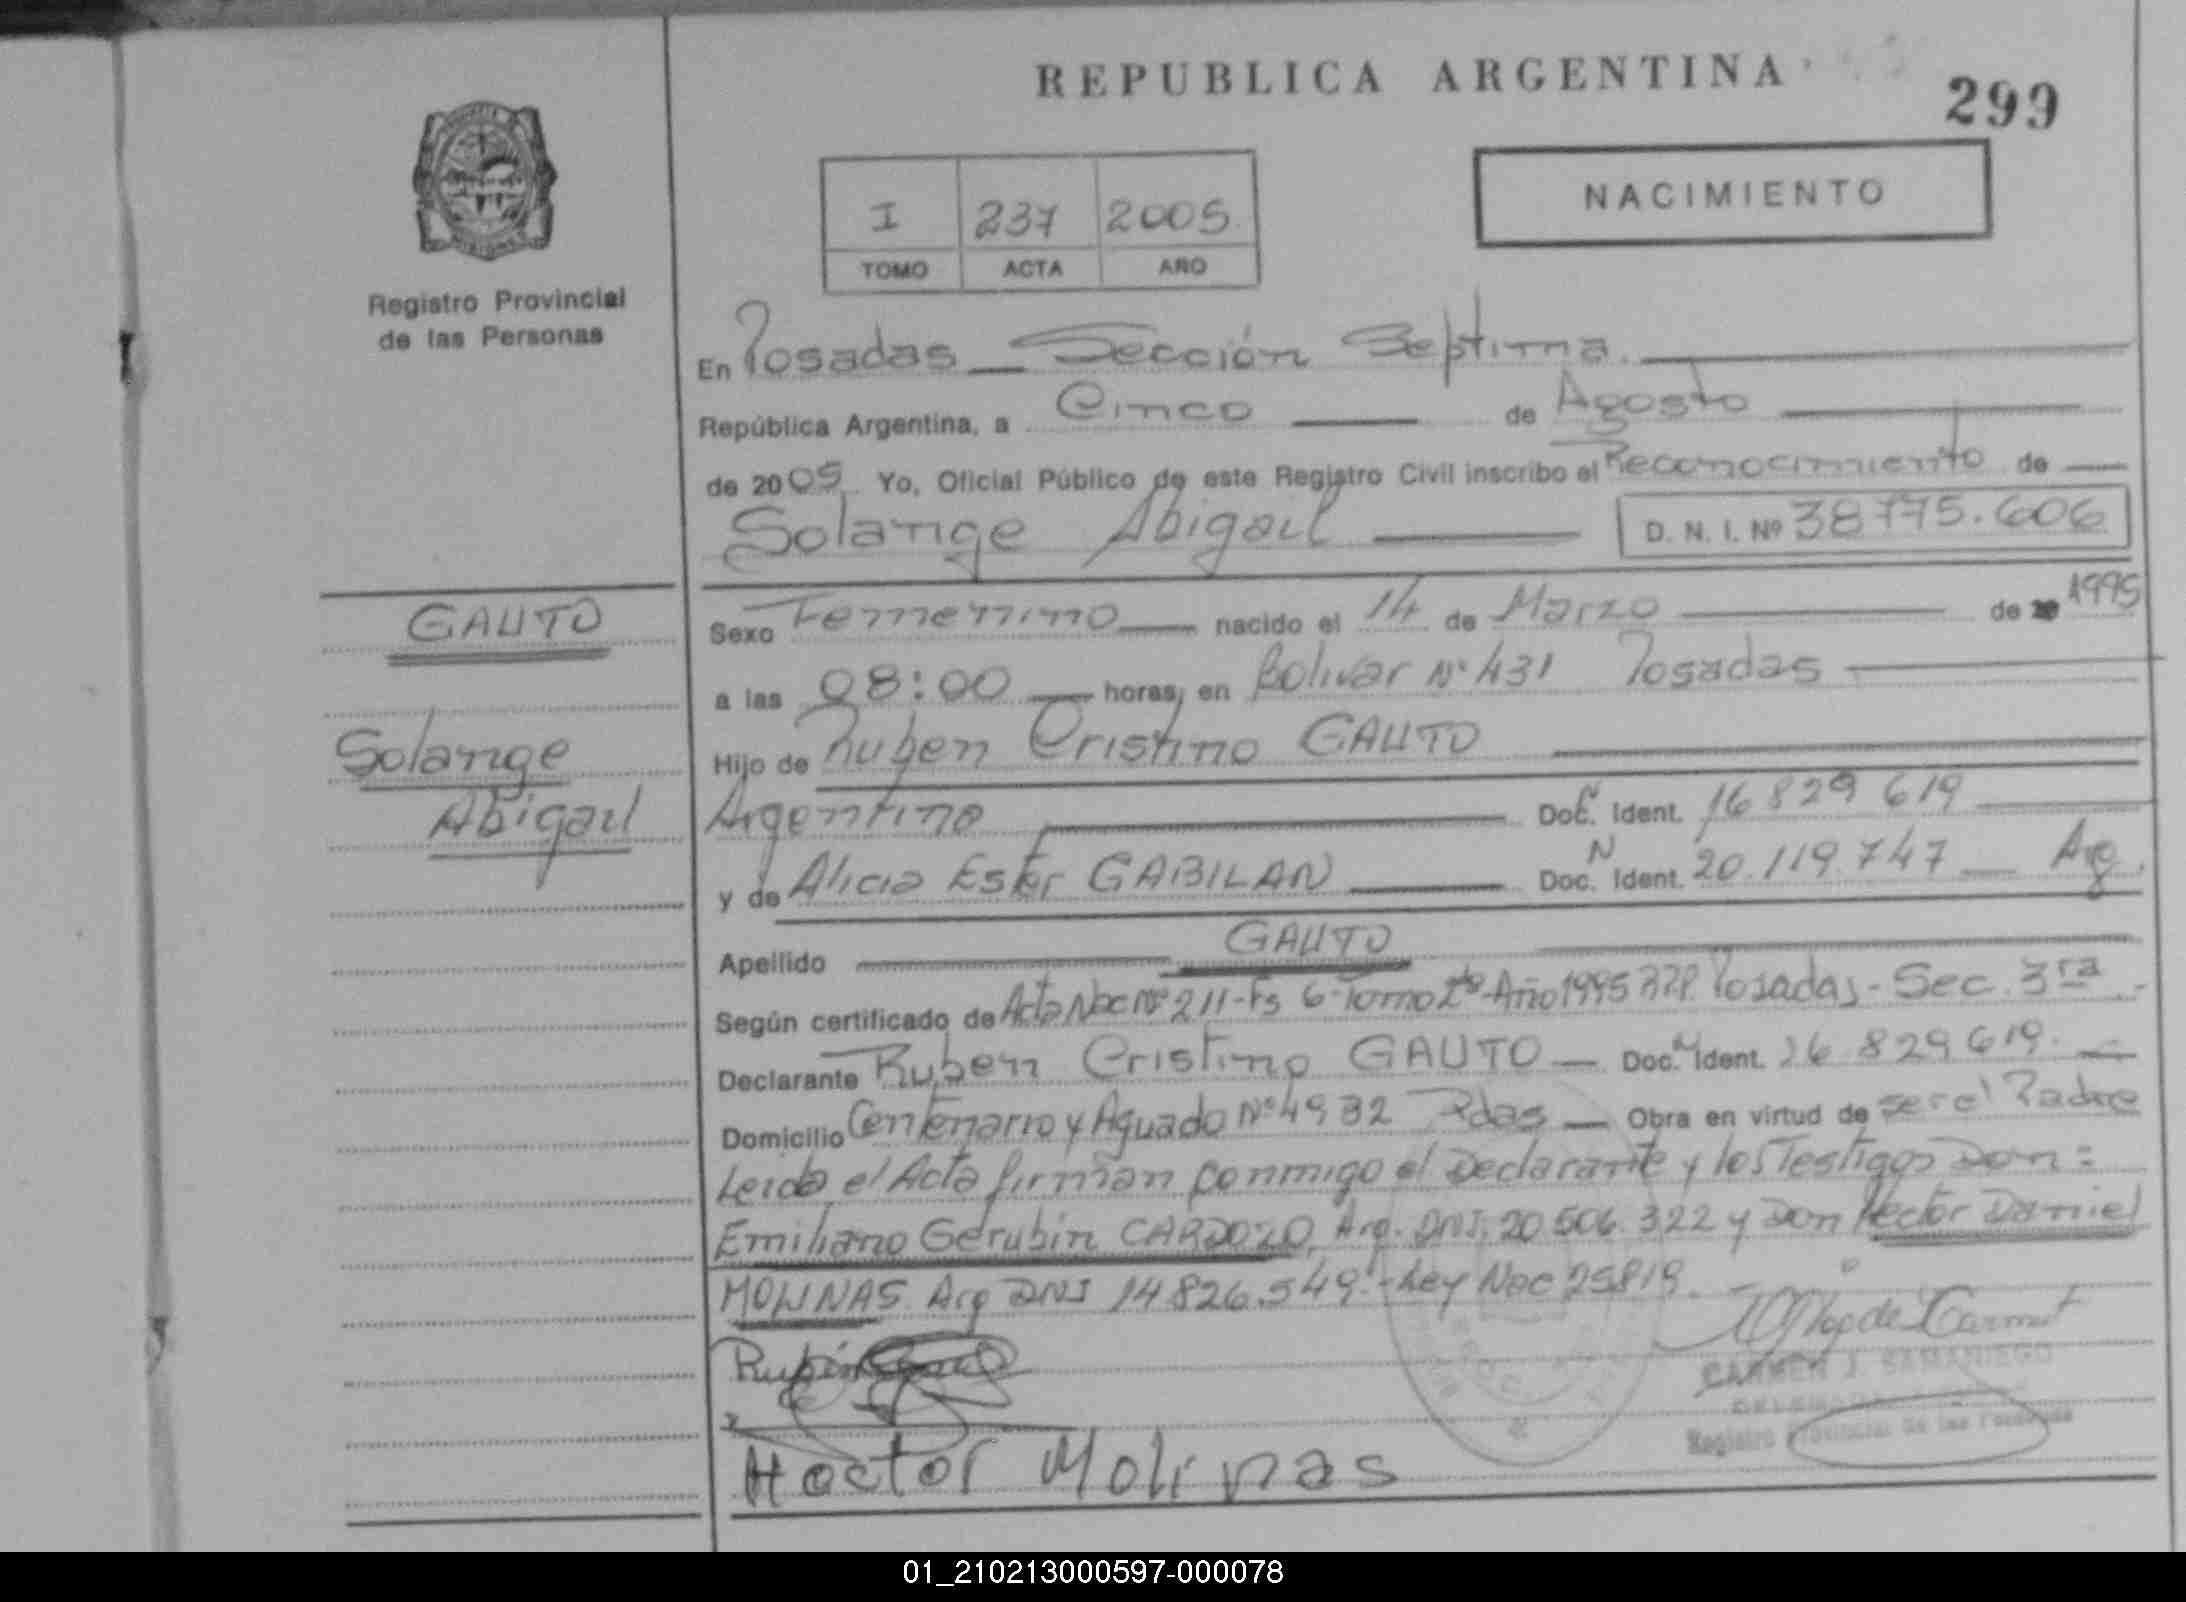 REPUBLICA ARGENTINA
299
NACIMIENTO
I 237 2005
TOMO ACTA AÑO
Registro Provincial
de las Personas
En Posadas — Sección Septima.
República Argentina, a Cinco de Agosto
de 2005 Yo, Oficial Público de este Registro Civil inscribo el Reconocimiento de
Solange Abigail D. N. I. Nº 38775.606
GAUTO
Solange
Abigail
Sexo Femenino nacido el 14 de Marzo de 1995
a las 08:00 horas, en Bolivar Nº 431 Posadas
Hijo de Ruben Cristino GAUTO
Argentino Doc. Ident. 16 829 619
y de Alicia Ester GABILAN Doc. N Ident. 20.119.747 Arg.
Apellido GAUTO
Según certificado de Acta Nac Nº 211-Fs 6-Tomo Año 1995 Posadas- Sec. 3ra
Declarante Ruben Cristino GAUTO — Doc. Ident. 16 829 619.
Domicilio Centenario y Aguado Nº 4932 Pdas — Obra en virtud de ser el Padre
Leida el Acta firman conmigo el Declarante y los Testigos Don:
Emiliano Gerubin CARDOZO, Arg. DNI. 20.506.322 y Don Hector Daniel
MOLINAS. Arg DNI 14 826.549.-Ley Nac 25819.
Rubén
CARMEN J. SAMANIEGO
Registro Provincial de las Personas
Hector Molinas
01_210213000597-000078